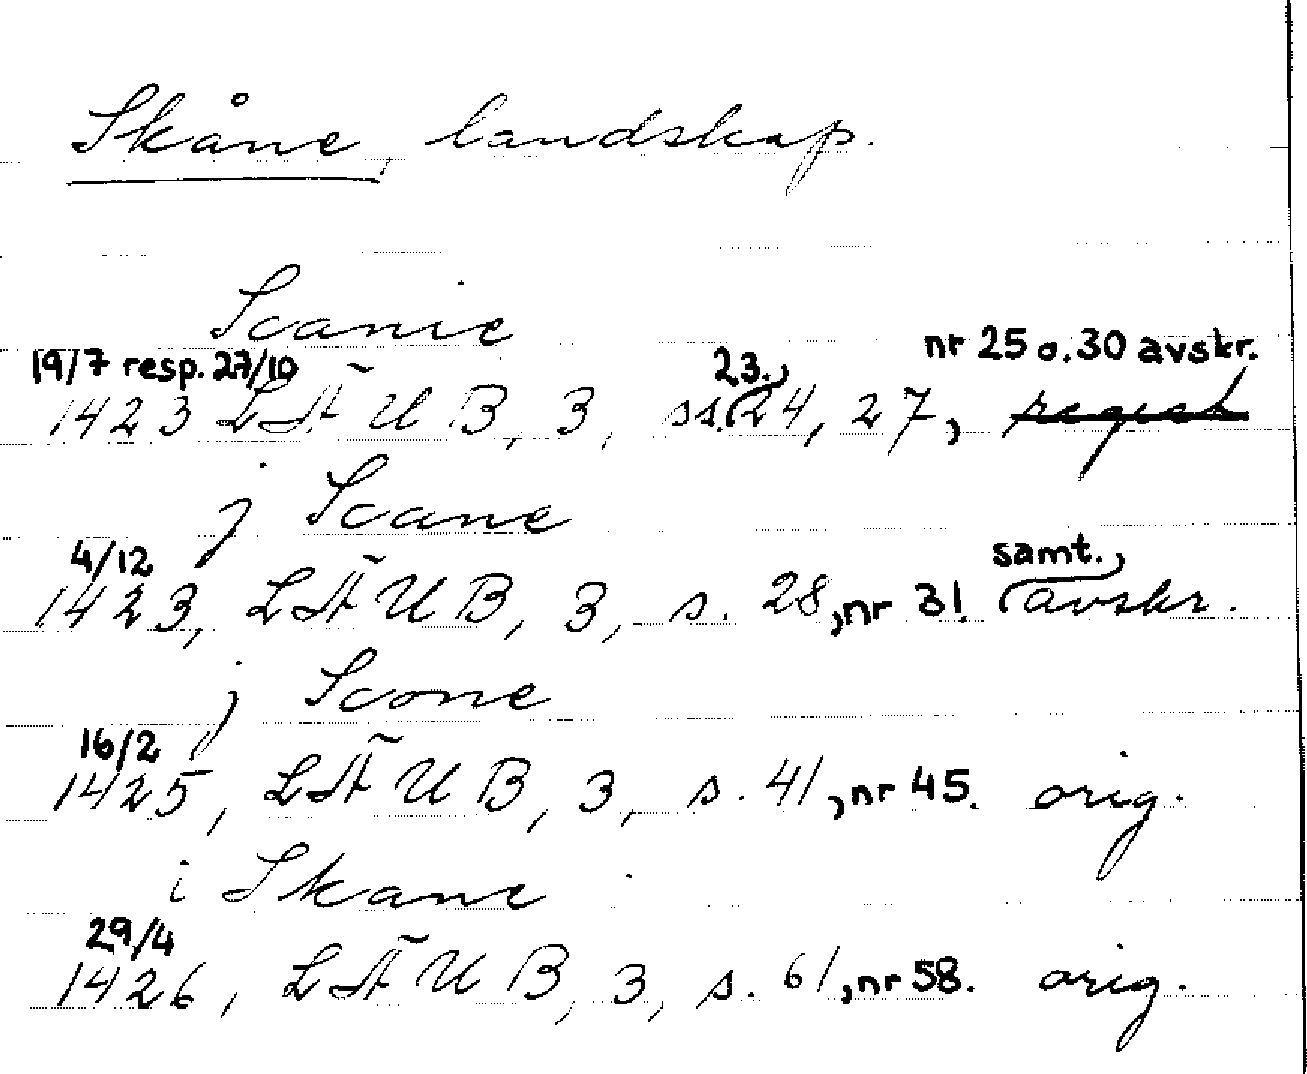 Skåne, landskap.
Scanie
19/7 resp. 27/10 nr 25 o. 30 avskr.
1423 LÄUB, 3, ss. 23, 24, 27, regest
j Scane
4/12 samt.
1423, LÄUB, 3, s. 28, nr 31. avskr.
j Scone
16/2
1425, LÄUB, 3, s. 41, nr 45. orig.
i Skane
29/4
1426, LÄUB, 3, s. 61, nr 58. orig.